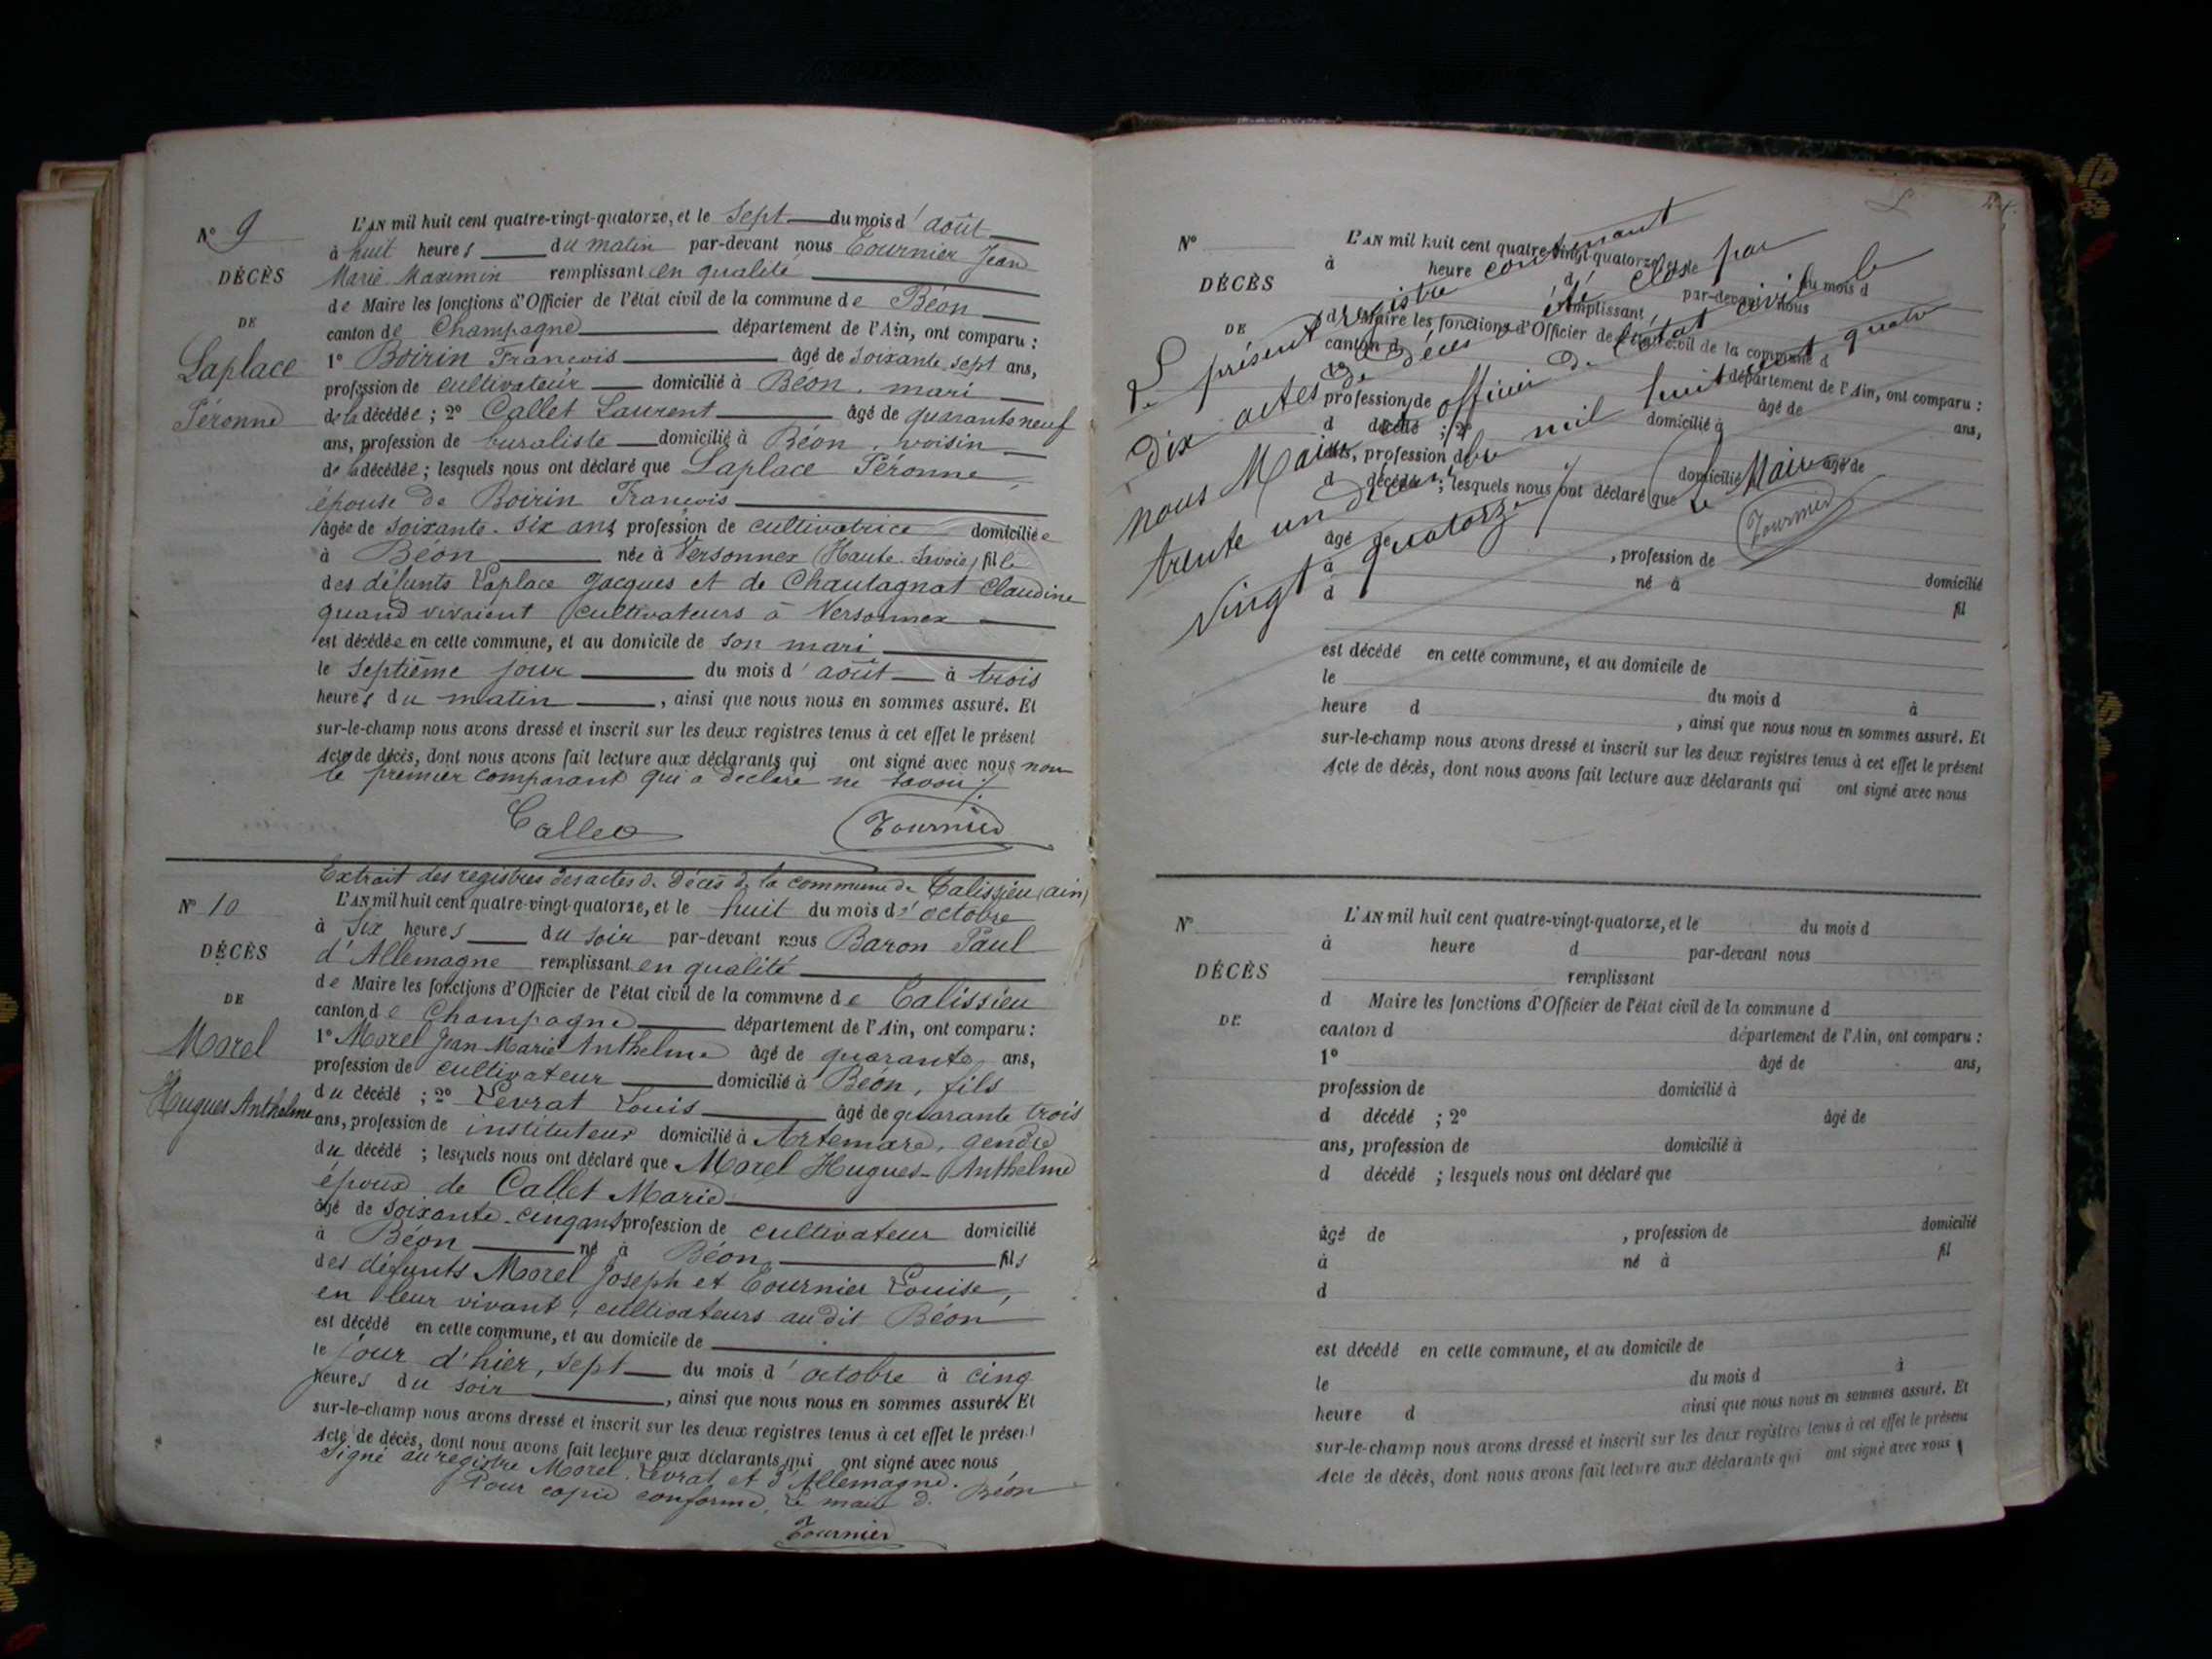 N° 9
DÉCÈS
DE
Laplace
Péronne
L'AN mil huit cent quatre-vingt-quatorze, et le sept du mois d'août
à huit heures du matin par-devant nous Tournier Jean
Marie Maximin remplissant en qualité
de Maire les fonctions d'Officier de l'état civil de la commune de Béon
canton de Champagne département de l'Ain, ont comparu :
1° Boirin François âgé de soixante sept ans,
profession de cultivateur domicilié à Béon, mari
de la décédée ; 2° Callet Laurent âgé de quarante neuf
ans, profession de buraliste domicilié à Béon, voisin
de la décédée ; lesquels nous ont déclaré que Laplace Péronne,
épouse de Boirin François
âgée de soixante-six ans, profession de cultivatrice domiciliée
à Béon née à Versonnex (Haute-Savoie) fille
des défunts Laplace Jacques et de Chautagnat Claudine
quand vivaient cultivateurs à Versonnex
est décédée en cette commune, et au domicile de son mari
le septième jour du mois d'août à trois
heures du matin, ainsi que nous nous en sommes assuré. Et
sur-le-champ nous avons dressé et inscrit sur les deux registres tenus à cet effet le présent
Acte de décès, dont nous avons fait lecture aux déclarants qui ont signé avec nous non
le premier comparant qui a déclaré ne savoir
Callet Tournier
Extrait des registres des actes de décès de la commune de Talissieu (ain)
N° 10
DÉCÈS
DE
Morel
Hugues Anthelme
L'AN mil huit cent quatre-vingt-quatorze, et le huit du mois d'octobre
à six heures du soir par-devant nous Baron Paul
d'Allemagne remplissant en qualité
de Maire les fonctions d'Officier de l'état civil de la commune de Talissieu
canton de Champagne département de l'Ain, ont comparu :
1° Morel Jean Marie Anthelme âgé de quarante ans,
profession de cultivateur domicilié à Béon, fils
du décédé ; 2° Levrat Louis âgé de quarante trois
ans, profession de instituteur domicilié à Artemare, gendre
du décédé ; lesquels nous ont déclaré que Morel Hugues-Anthelme
époux de Callet Marie
âgé de soixante-cinq ans profession de cultivateur domicilié
à Béon né à Béon fils
des défunts Morel Joseph et Tournier Louise,
en leur vivant, cultivateurs audit Béon
est décédé en cette commune, et au domicile de
le jour d'hier, sept du mois d'octobre à cinq
heures du soir, ainsi que nous nous en sommes assuré. Et
sur-le-champ nous avons dressé et inscrit sur les deux registres tenus à cet effet le présent
Acte de décès, dont nous avons fait lecture aux déclarants qui ont signé avec nous
Signé au registre Morel, Levrat et d'Allemagne.
Pour copie conforme, Le maire de Béon
Tournier
N°
DÉCÈS
DE
Le présent registre contenant
dix actes de décès a été clos par
nous Maire et officier de l'état civil le
trente un décembre mil huit cent quatre
vingt quatorze
Le Maire
Tournier
L'AN mil huit cent quatre-vingt-quatorze, et le du mois d
à heure d par-devant nous
remplissant
d Maire les fonctions d'Officier de l'état civil de la commune d
canton d département de l'Ain, ont comparu :
1° âgé de ans,
profession de domicilié à
d décédé ; 2° âgé de
ans, profession de domicilié à
d décédé ; lesquels nous ont déclaré que
âgé de , profession de domicilié
à né à fil
d
est décédé en cette commune, et au domicile de
le du mois d à
heure d , ainsi que nous nous en sommes assuré. Et
sur-le-champ nous avons dressé et inscrit sur les deux registres tenus à cet effet le présent
Acte de décès, dont nous avons fait lecture aux déclarants qui ont signé avec nous
N°
DÉCÈS
DE
L'AN mil huit cent quatre-vingt-quatorze, et le du mois d
à heure d par-devant nous
remplissant
d Maire les fonctions d'Officier de l'état civil de la commune d
canton d département de l'Ain, ont comparu :
1° âgé de ans,
profession de domicilié à
d décédé ; 2° âgé de
ans, profession de domicilié à
d décédé ; lesquels nous ont déclaré que
âgé de , profession de domicilié
à né à fil
d
est décédé en cette commune, et au domicile de
le du mois d à
heure d ainsi que nous nous en sommes assuré. Et
sur-le-champ nous avons dressé et inscrit sur les deux registres tenus à cet effet le présent
Acte de décès, dont nous avons fait lecture aux déclarants qui ont signé avec nous